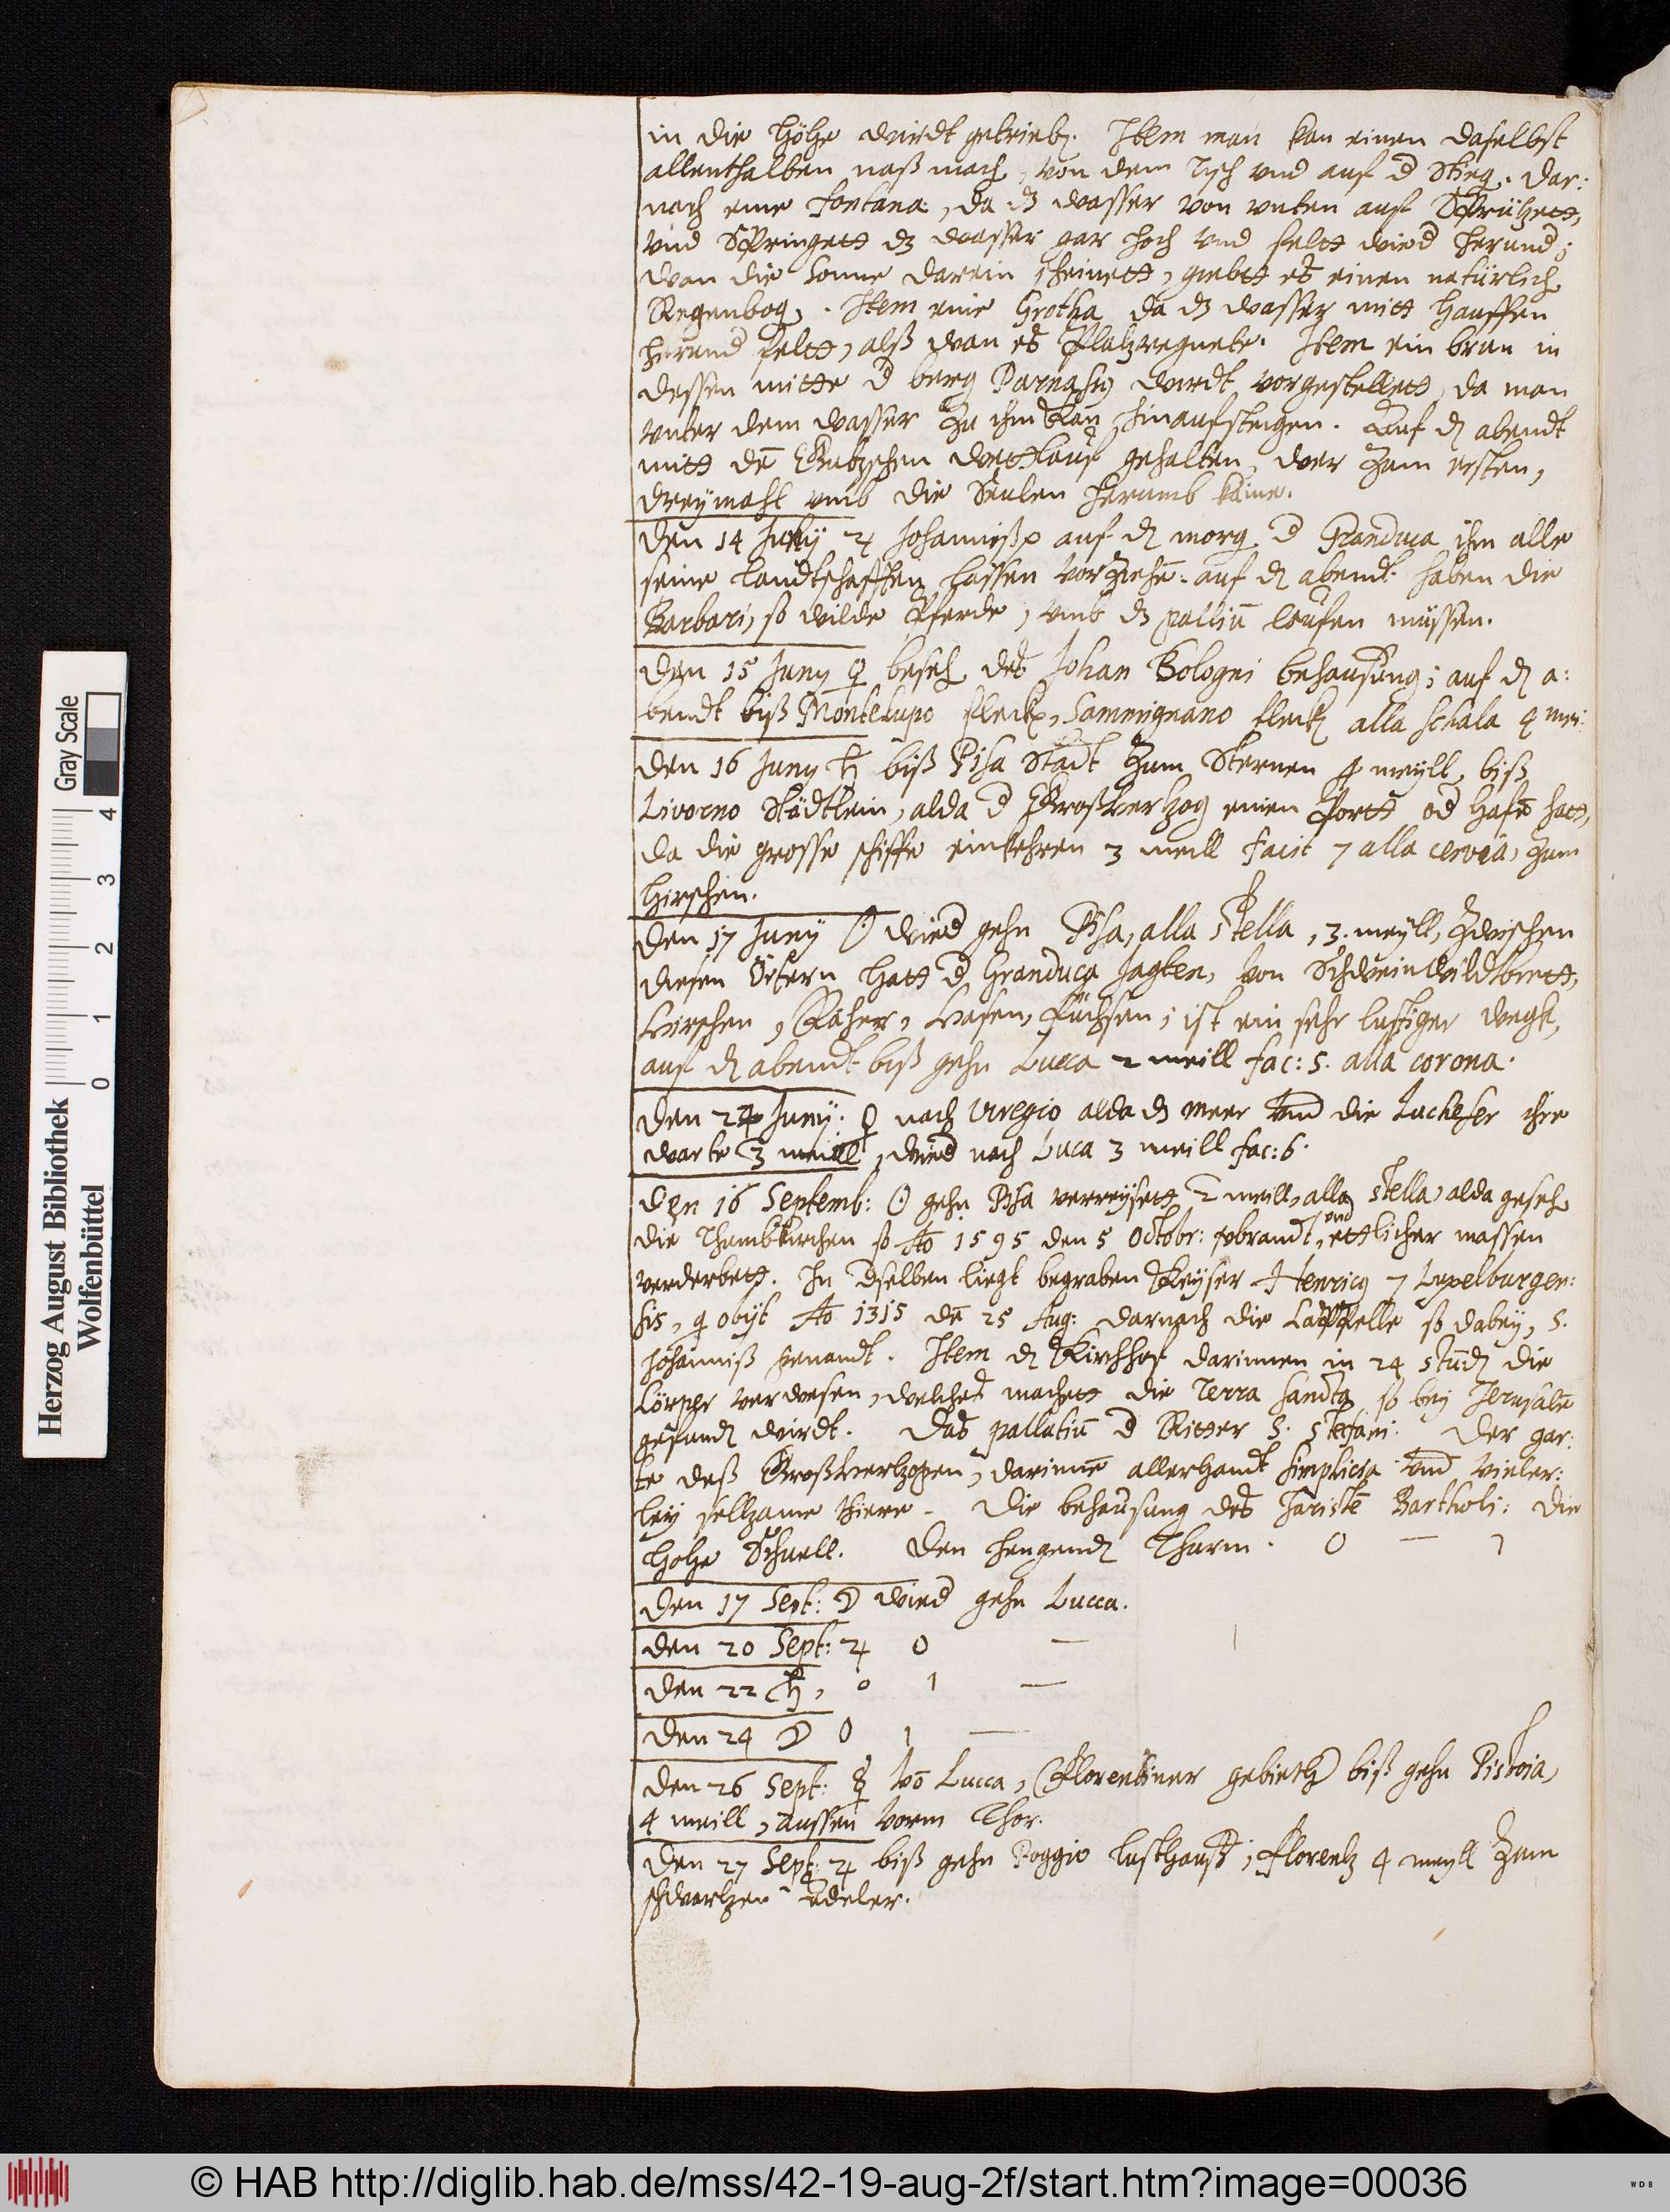 in die Höhe wirdt getrieb. Item man kan einen daselbst
allenthalben naß mach, von dem Tisch vnd auf d Stieg. dar:
nach eine Fontana, da dz wasser von vnten auf Sprützett,
vnd Springett dz wasser gar hoch vnd felt wied herund;
wan die Sonne darein scheinett, giebtt es einen natürlich
Regenbog. Item eine Grotha da dz wasser mitt hauffen
herund felt, alß wan es Platzregnete. Item ein brun in
dessen mitte d berg Parnassg wirdt vorgestellett, da man
vnter dem wasser zu ihm kan hinaufsteigen. Auf d abendt
mitt dē Kutzschen wettlauf gehalten, wer zum ersten,
dreymahl vmb die Seulen herumb käme.
den 14 Juny ♃ Johannis auf d morg d Granduca ihm alle
seine landtschafften lassen vorziehē. auf d abendt haben die
Barbari, so wilde Pferde, vmb dz palliū laufen müssen.
den 15 Juny ♀ beseh des Johan Bologni behausung; auf d a:
bendt biß Montelupo fleck, Sammignano fleck alla schala 4 mei:
den 16 Juny ♄ biß Pisa Stadt zum Sternen 4 meyll, biß
Livorno Städtlein, alda d Großhertzog einen Portt od Hafē hatt,
da die grosse schiffe einkehren 3 meill facit 7 alla cervia, zum
Hirschen.
den 17 Juny ☉ wied gehn Pisa, alla stella, 3. meyll, zwischen
diesen Örtern hatt d Granduca Jagten, von Schweinwildbrett,
Hirschen, Räher, Hasen, Füchsen; ist ein sehr lustiger wegk,
auf d abendt biß gehn Lucca 2 meill fac: 5. alla corona.
den 22 Juny: ♀ nach Viregio alda dz meer vnd die Lucheser ihre
warte 3 meill, wied nach Luca 3 meill fac: 6.
den 16 Septemb: ☉ gehn Pisa verreysett 2 meill, alla stella, alda geseh
die Thumbkirchen so Ao 1595 den 5 Octobr: vbrandt, vnd ettlicher massen
verderbett. In dselben liegt begraben Keyser Henricg 7 Luxelburgen:
sis, q obijt Ao 1315 dē 25 Aug: darnach die Cappelle so dabey, S.
Johanniß genandt. Item d Kirchhof darinnen in 24 stūd die
Cörper verwesen, welches machett die Terra sancta so bey Jerusalē
gefund wirdt. Das pallatiū d Ritter S. Stefani. Der gar:
te deß Großhertzogen, darinnē allerhandt simplicia vnd vieler:
ley seltzame thiere. Die behausung des Juristē Bartholi: die
hohe Schuell. Den hengend Thurm. 0 — 1
den 17 Sept: ☽ wied gehn Lucca.
den 20 Sept: ♃ 0 — 1
den 22 ♄, 0 1 —
den 24 ☽ 0 1 —
den 26 Sept: ☿ vō Lucca, (Florentiner gebieth) biß gehn Pistoia,
4 meill, aussen vorm Thor.
den 27 Sept: ♃ biß gehn Poggio lusthauß, Florentz 4 meyll zum
schwartzen Adeler.
Herzog August Bibliothek
Wolfenbüttel
Gray Scale
0 1 2 3 4
© HAB http://diglib.hab.de/mss/42-19-aug-2f/start.htm?image=00036
WDB